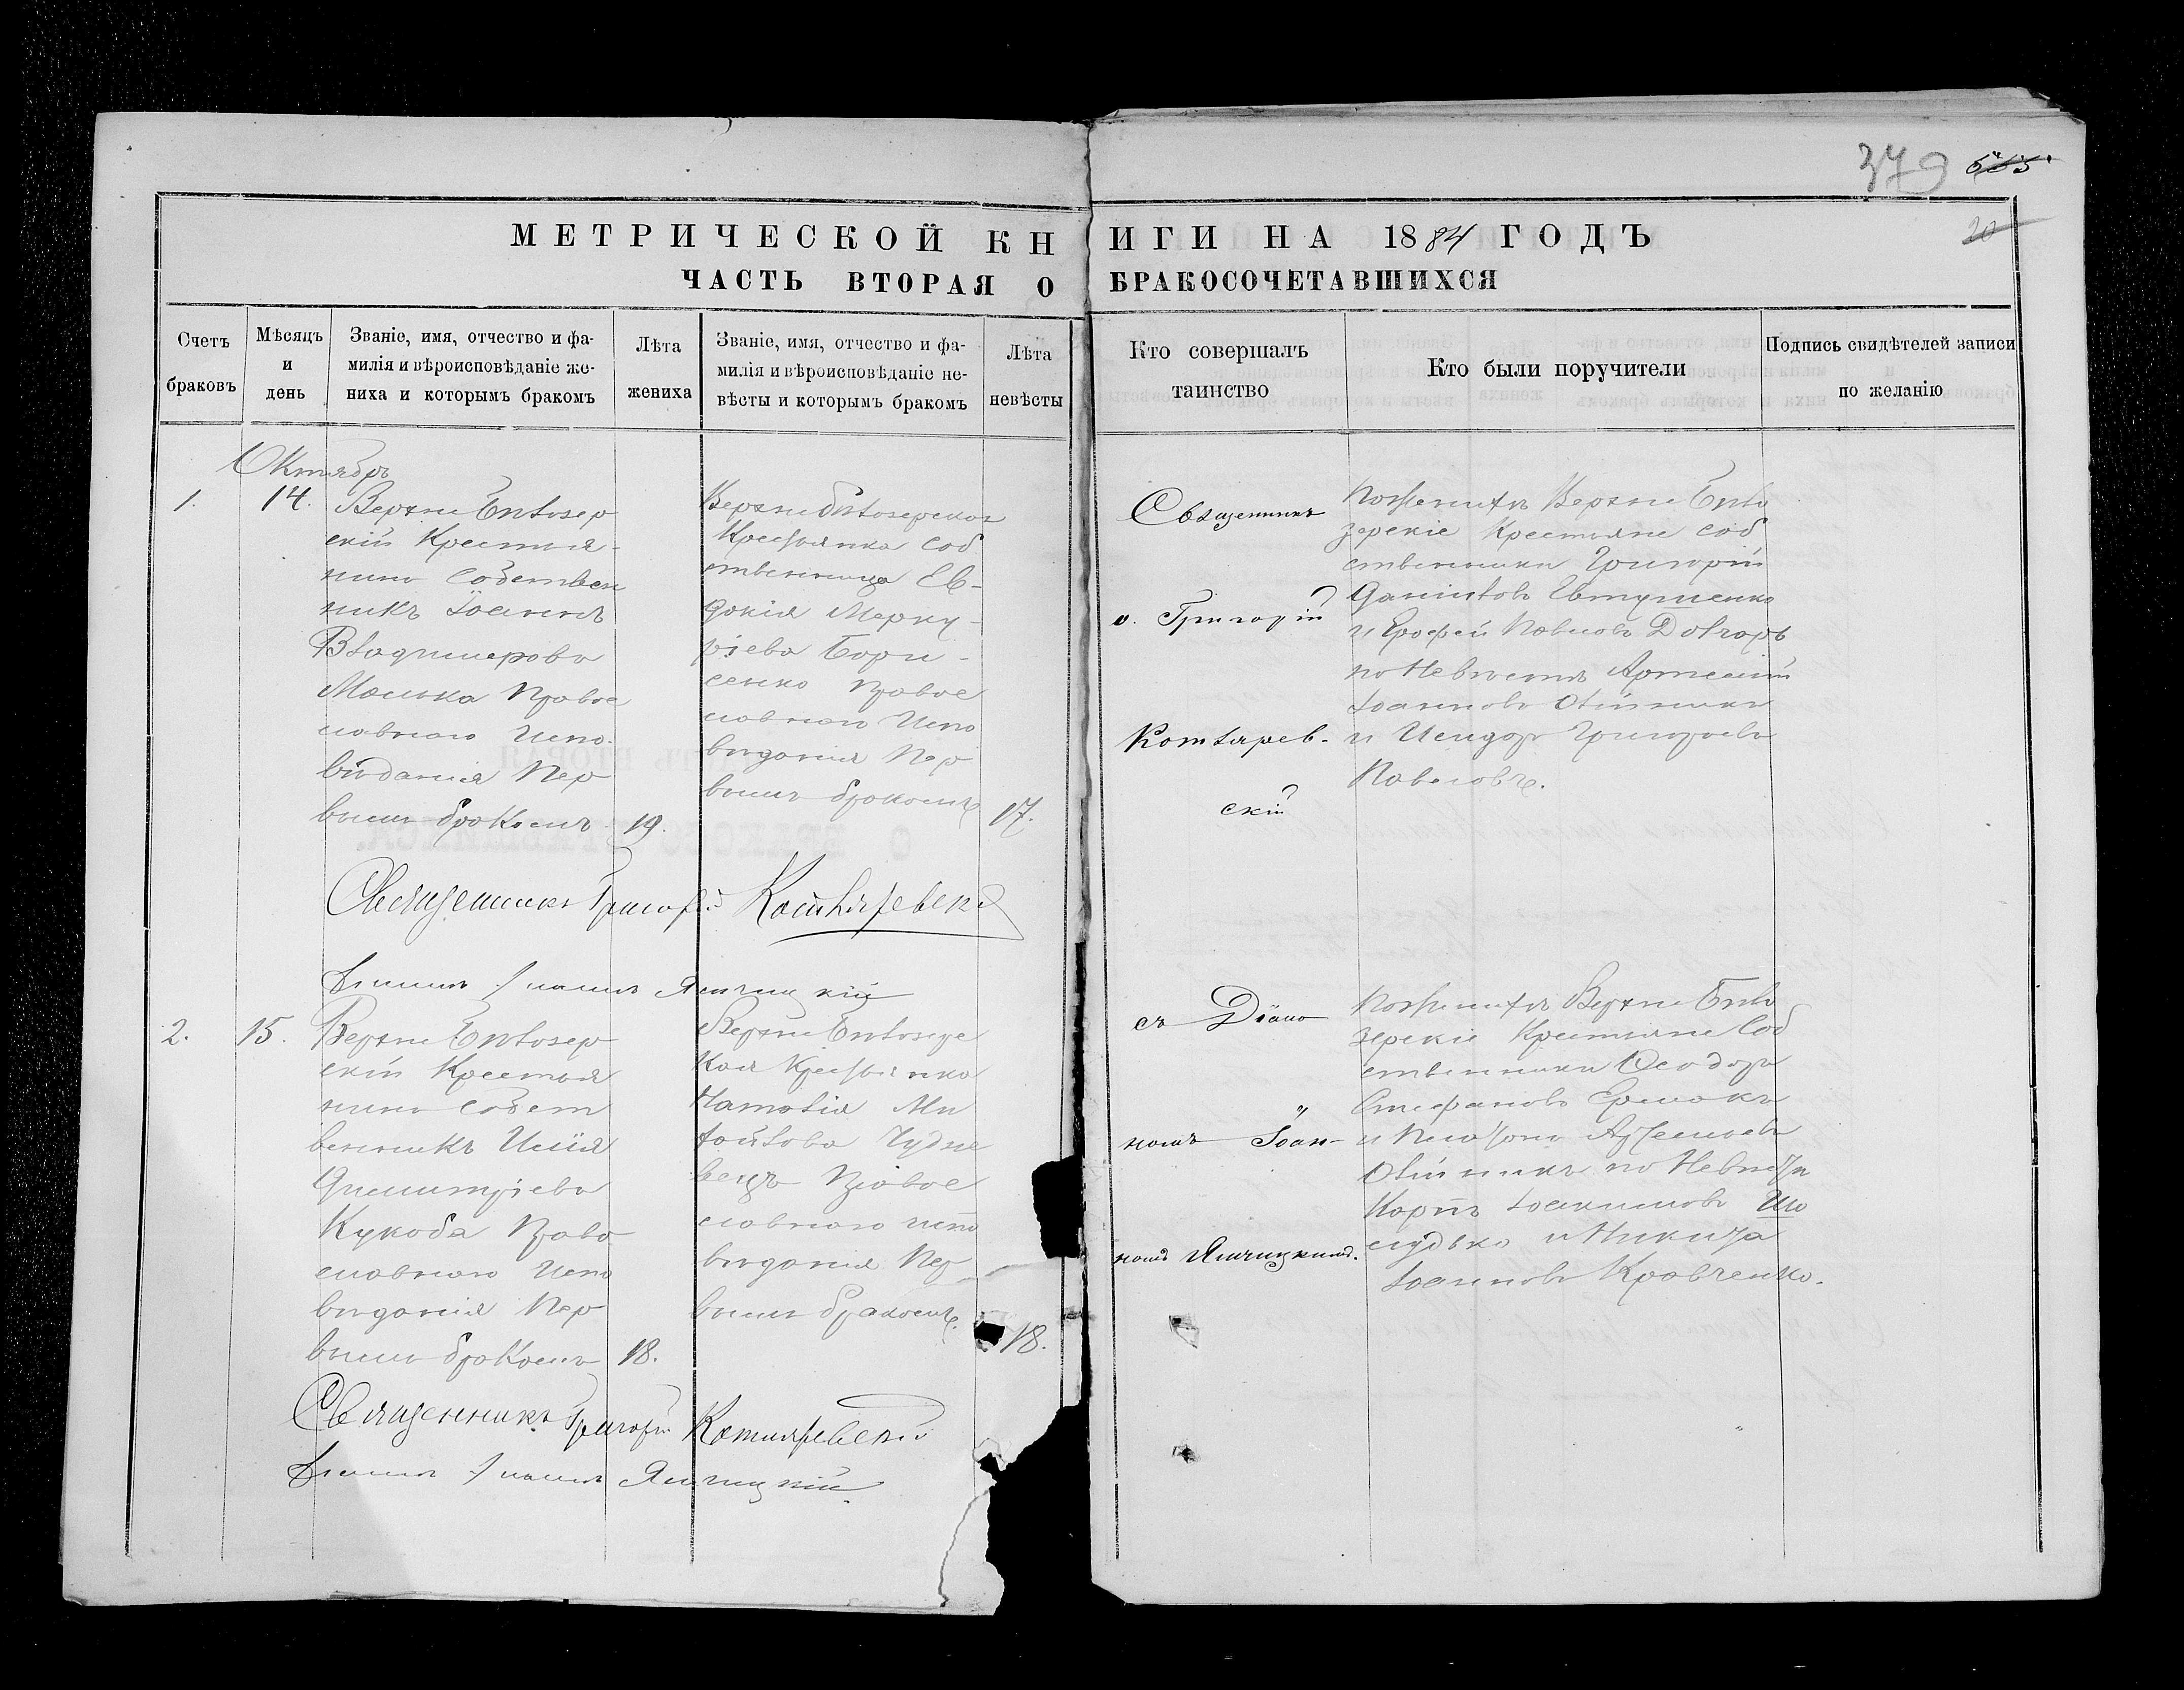 379 585
20
МЕТРИЧЕСКОЙ КНИГИ НА 1884 ГОДЪ
ЧАСТЬ ВТОРАЯ О БРАКОСОЧЕТАВШИХСЯ
Счетъ
браковъ
Мѣсяцъ
и
день
Званіе, имя, отчество и фа-
милія и вѣроисповѣданіе же-
ниха и которымъ бракомъ
Лѣта
жениха
Званіе, имя, отчество и фа-
милія и вѣроисповѣданіе не-
вѣсты и которымъ бракомъ
Лѣта
невѣсты
Кто совершалъ
таинство
Кто были поручители
Подпись свидѣтелей записи
по желанію
Октябрь
1.
14.
Верхне Бѣлозер
скій Крестья-
нинъ Собствен
никъ Іоаннъ
Владимеровъ
Правос
лавнаго Испо-
вѣданія Пер
вымъ бракомъ
19.
Верхнебѣлозерская
Крестьянка Соб
ственница Ев-
докія Мерку-
ріева Бори-
сенко Правос
лавнаго Испо
вѣданія Пер
вымъ бракомъ
17.
Священникъ
о. Григорій
Котляров-
скій
По Женихѣ Верхне Бѣло
зерскіе Крестьяне Соб
ственники Григорій
Даніиловъ Евтушенко
и Ерофей Павловъ Довгаръ
по Невѣстѣ Артемій
Іоанновъ Олійникъ
и Исидоръ Григорьевъ
Павловъ.
Священникъ Григорій Котляревскій
Діаконъ Іоаннъ Ямчицкій
2.
15.
Верхне Бѣлозер
скій Крестья
нинъ Собст
венникъ Илія
Димитріевъ
Кукоба Право
славнаго Испо
вѣданія Пер
вымъ бракомъ
18.
Верхне Бѣлозерс
кая Крестьянка
Наталія Ми
хайлова Чудно
вецъ Правос
лавнаго испо
вѣданія Пер
вымъ бракомъ.
18.
съ Діако
номъ Іоан-
номъ Ямчицкимъ.
По Женихѣ Верхне Бѣло
зерскіе Крестьяне Соб
ственники Ѳеодоръ
Стефановъ Ермакъ
и
Олійникъ по Невѣстѣ
Карпъ Іоакимовъ Шо
и Никита
Іоанновъ Кравченко.
Священникъ Григорій Котляревскій
Діаконъ Іоаннъ Ямчицкій.